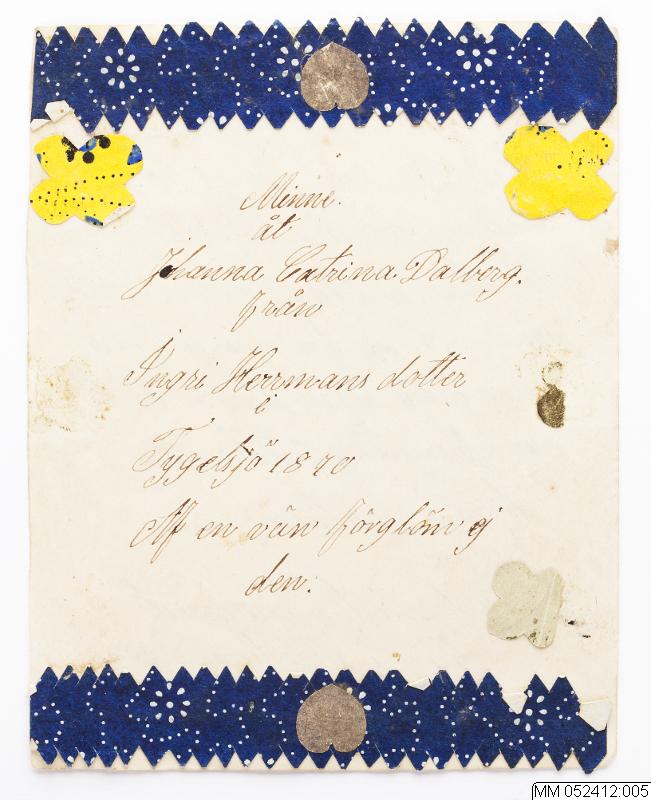 Minne.
åt
Johanna Catrina Dalberg.
från
Ingri Herrmans dotter
i
Tygelsjö 1870
Af en vän förglöm ej
den.
MM 052412:005